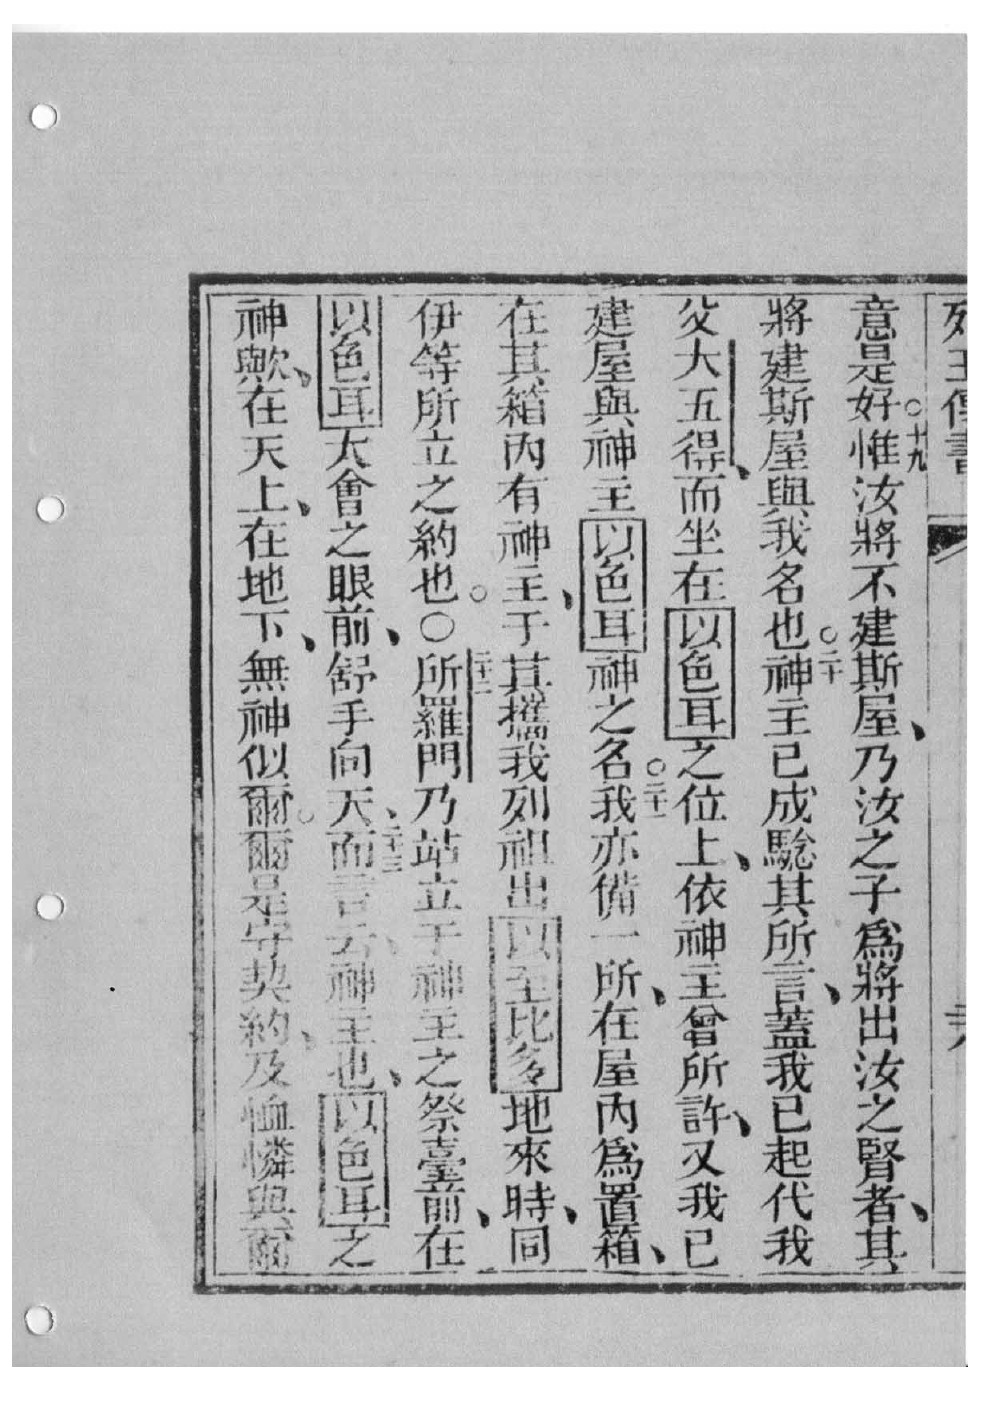 列王傳書
意是好○十九惟汝將不建斯屋、乃汝之子爲將出汝之腎者、其
將建斯屋與我名也○二十神主已成騐其所言、蓋我已起代我
父大五得、而坐在以色耳之位上、依神主曾所許、又我已
建屋與神主以色耳神之名○二十一我亦備一所、在屋內爲置箱、
在其箱內有神主、于其攜我列祖出以至比多地來時、同
伊等所立之約也。○二十二所羅門乃站立于神主之祭臺前、在
以色耳大會之眼前、舒手向天、二十三而言云、神主也、以色耳之
神歟、在天上、在地下、無神似爾。爾是守契約、及恤憐與爾